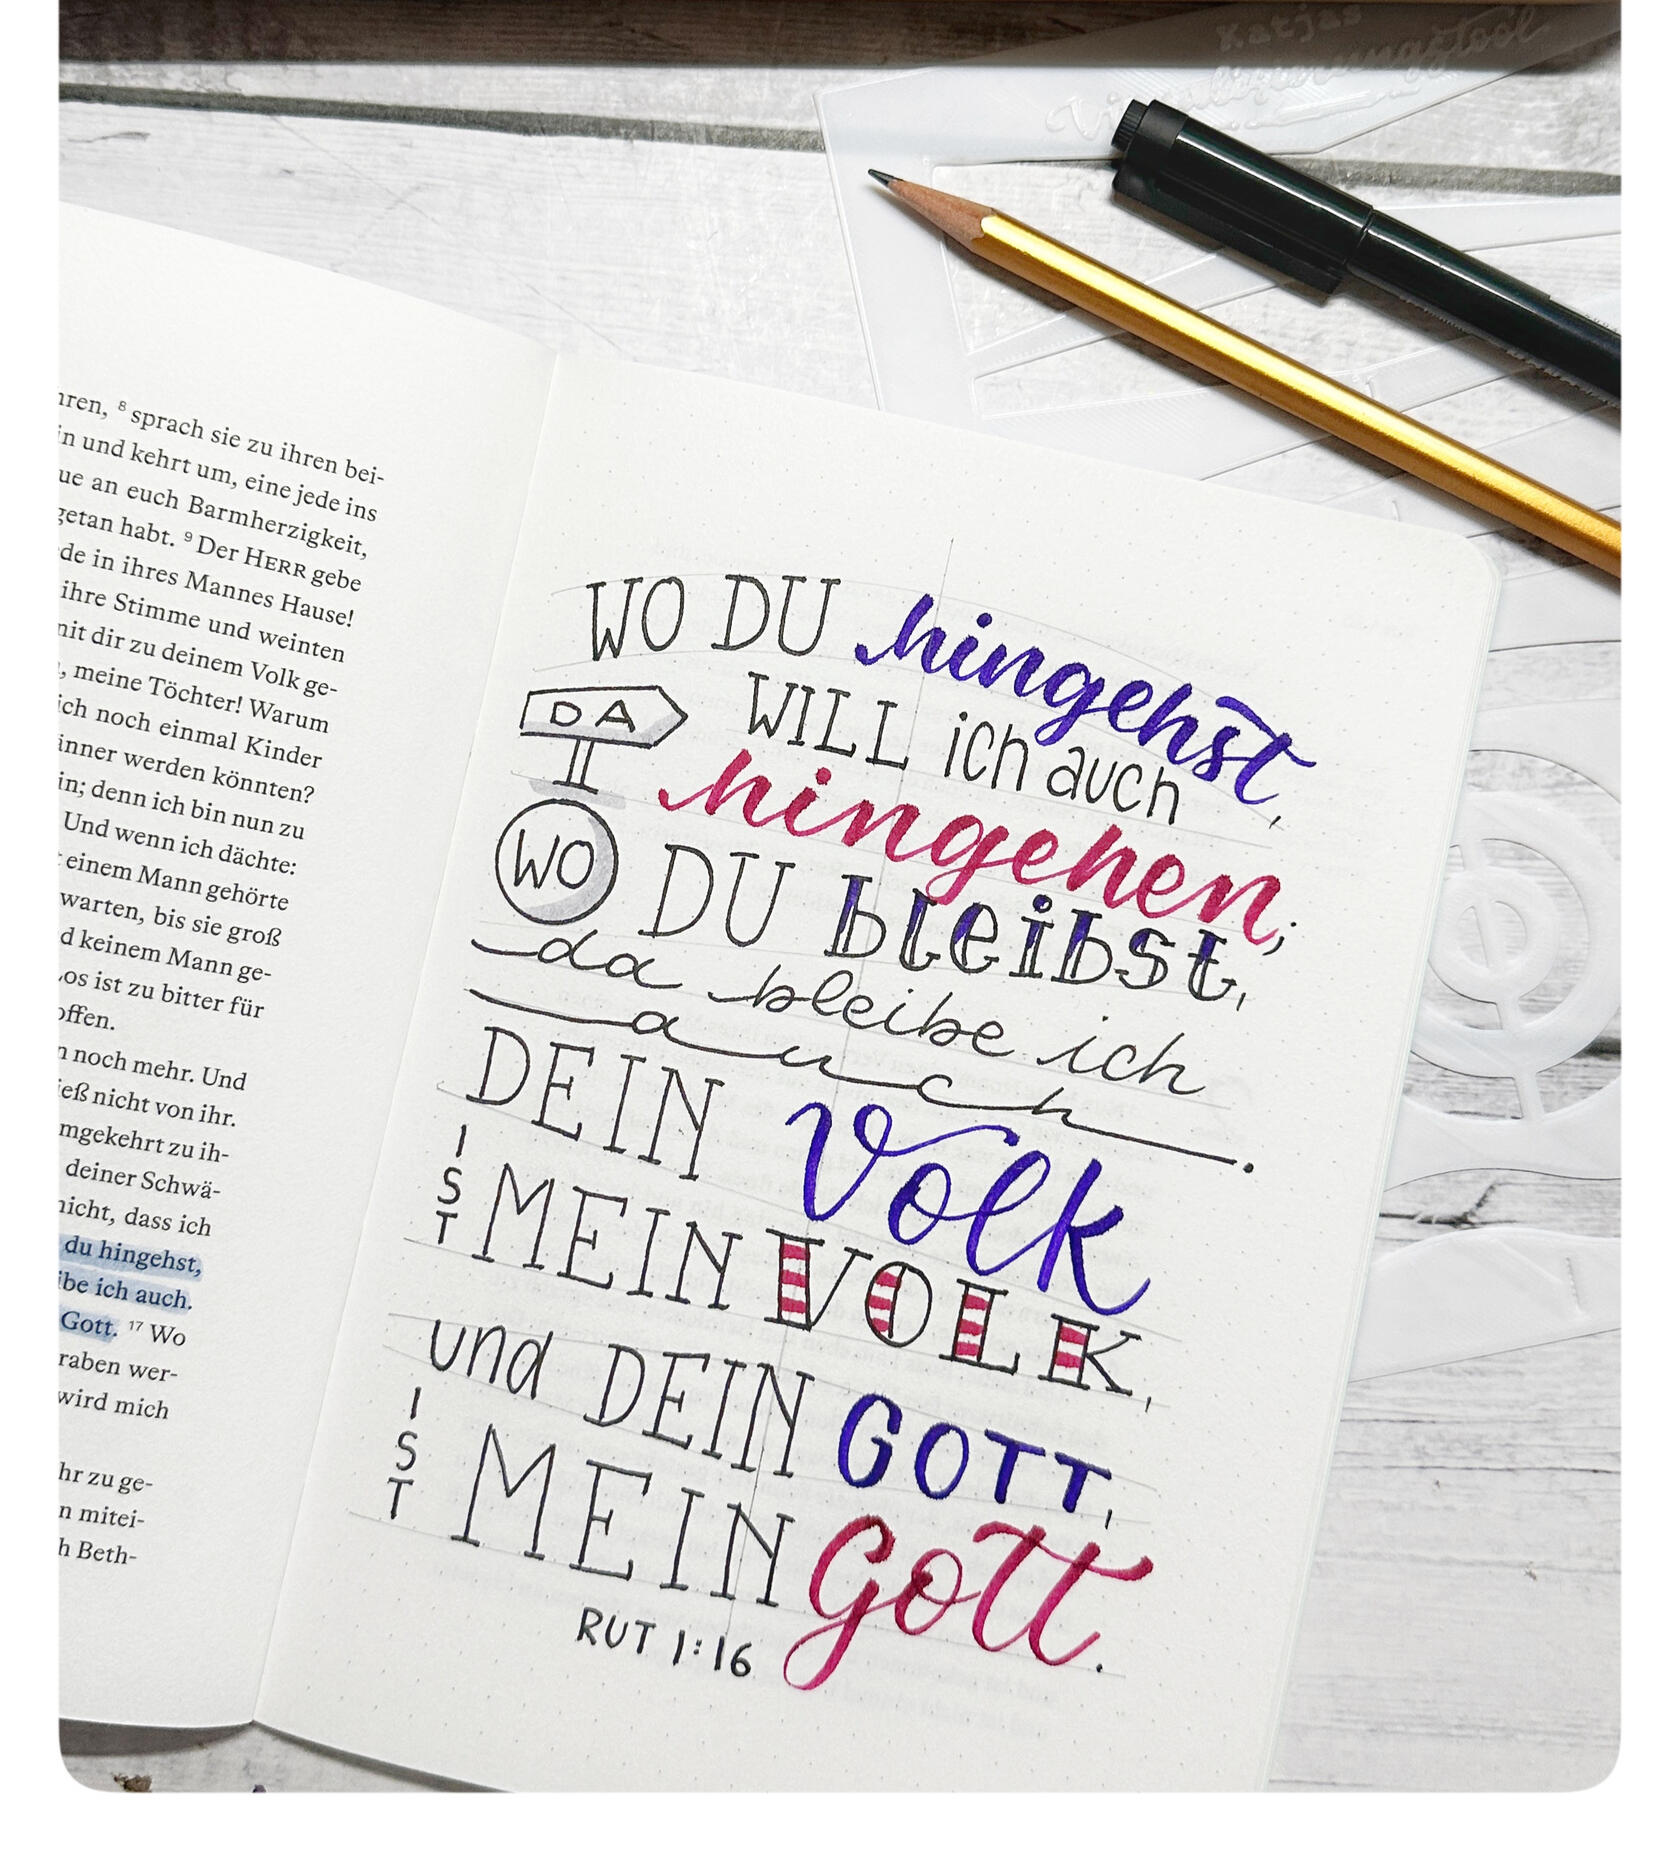 Katjas
Visualisierungstool
hren, ⁸ sprach sie zu ihren bei-
in und kehrt um, eine jede ins
ue an euch Barmherzigkeit,
getan habt. ⁹ Der HERR gebe
de in ihres Mannes Hause!
ihre Stimme und weinten
mit dir zu deinem Volk ge-
, meine Töchter! Warum
ich noch einmal Kinder
änner werden könnten?
in; denn ich bin nun zu
Und wenn ich dächte:
einem Mann gehörte
warten, bis sie groß
d keinem Mann ge-
Los ist zu bitter für
offen.
n noch mehr. Und
ieß nicht von ihr.
mgekehrt zu ih-
deiner Schwä-
nicht, dass ich
du hingehst,
ibe ich auch.
Gott. ¹⁷ Wo
raben wer-
wird mich
hr zu ge-
n mitei-
h Beth-
WO DU hingehst,
DA WILL ich auch
hingehen;
WO DU bleibst,
da bleibe ich
auch.
DEIN Volk
IST MEIN VOLK,
und DEIN GOTT,
IST MEIN Gott.
RUT 1:16